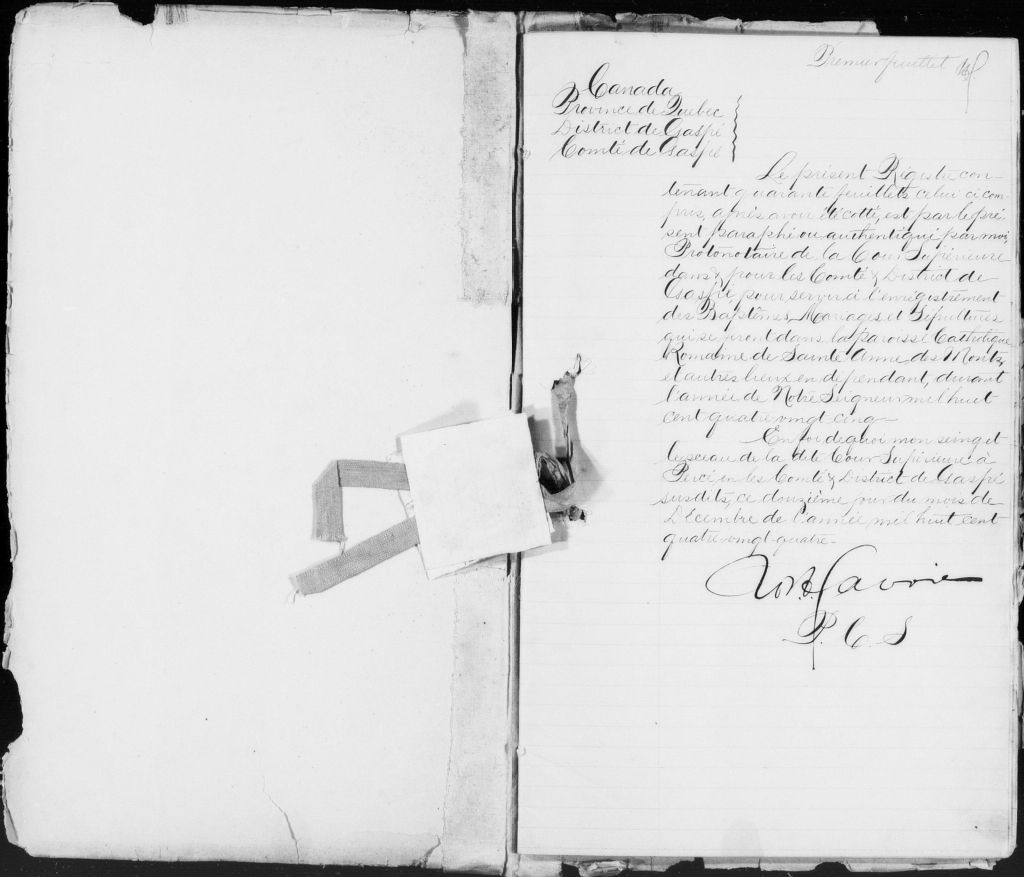 Premier feuillet
Canada
Province de Québec
District de Gaspé
Comté de Gaspé
Le présent Régistre con-
tenant quarante feuillets celui ci com-
pris, après avoir été cotté, est par le pré-
sent paraphé ou authentiqué par moi,
Protonotaire de la Cour Supérieure
dans & pour les Comté & District de
Gaspé, pour servir à l'enrégistrement
des Baptêmes, Mariages et Sépultures
qui se feront dans la paroisse Catholique
Romaine de Sainte Anne des Monts,
et autres lieux en dépendant, durant
l'année de Notre Seigneur mil huit
cent quatre vingt cinq-
En foi de quoi mon seing et
le sceau de la dite Cour Supérieure à
Percé en les Comté & District de Gaspé
susdits, ce douzième jour du mois de
Décembre de l'année mil huit cent
quatre-vingt-quatre-
Lavoie
P. C. S